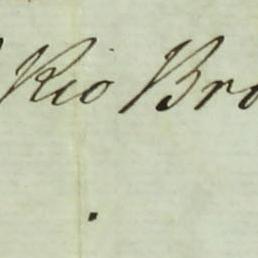 Rio Bro